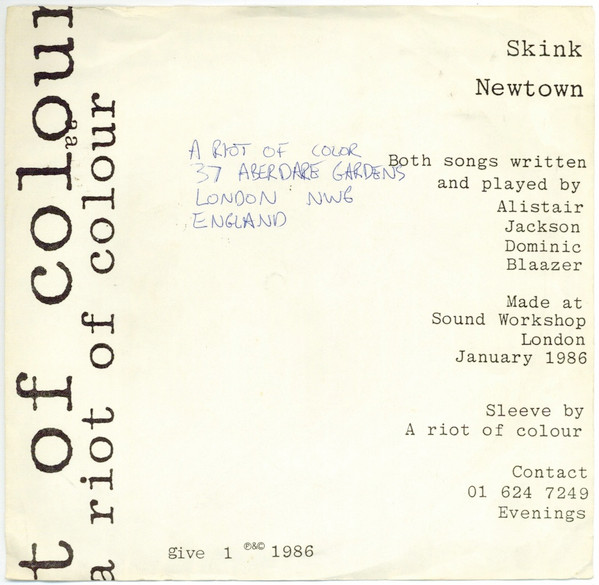 t of colour
a riot of colour
aa
Skink
Newtown
A RIOT OF COLOR
37 ABERDARE GARDENS
LONDON NW6
ENGLAND
Both songs written
and played by
Alistair
Jackson
Dominic
Blaazer
Made at
Sound Workshop
London
January 1986
Sleeve by
A riot of colour
Contact
01 624 7249
Evenings
give 1 ℗&© 1986